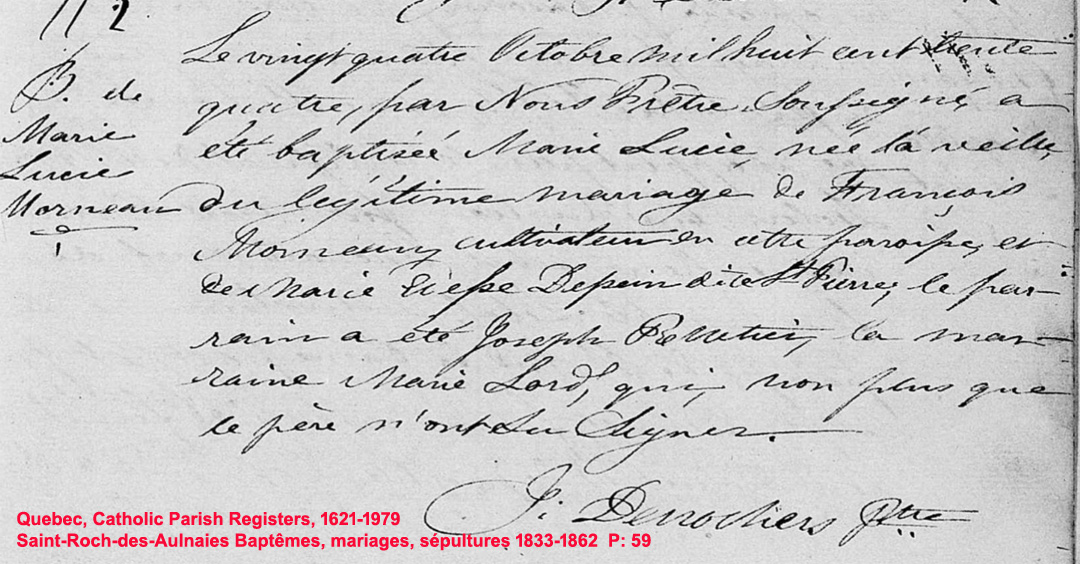 112
B. de
Marie
Lucie
Morneau
Le vingt quatre Octobre mil huit cent trente
quatre, par Nous Prêtre, Soussigné, a
été baptisée Marie Lucie, née la veille,
du légitime mariage de François
Morneau, cultivateur en cette paroisse, et
de Marie Dite St Pierre, le par-
rain a été Joseph Pelletier, la mar-
raine Marie Lord, qui, non plus que
le père n'ont su Signer.
Desrochers Ptre
Quebec, Catholic Parish Registers, 1621-1979
Saint-Roch-des-Aulnaies Baptêmes, mariages, sépultures 1833-1862 P: 59